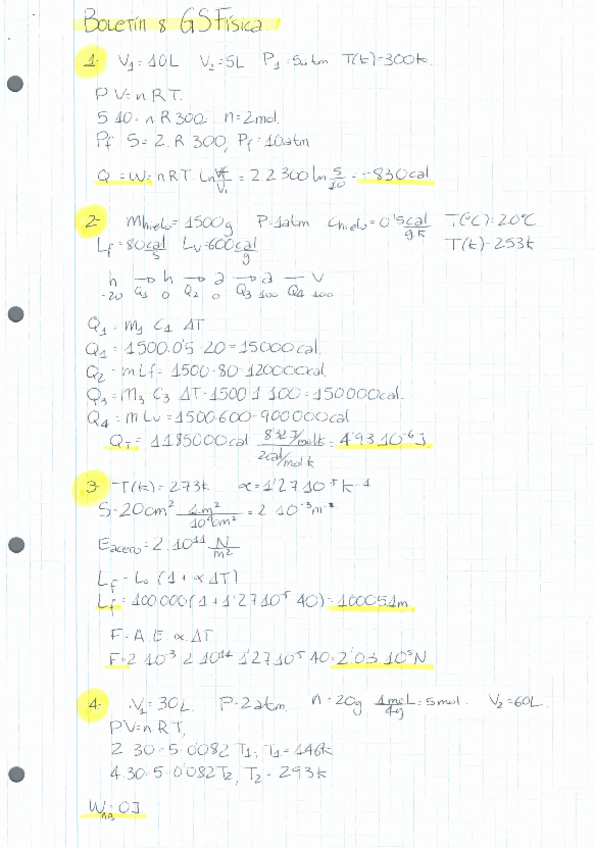 BOLETÍN 8 GS Física
1. V₁=10L V₂=5L P₁=5atm T(k)=300k.
PV=nRT.
5·10=n R 300. n=2mol.
Pf 5=2·R 300, Pf=10atm
Q=W=nRT Ln V₂/V₁=2 2 300 ln 5/10=-830cal
2- Mhielo=1500g P=1atm Chielo=0'5 cal/g·k T(ºC)=20ºC
Lf=80 cal/g Lv=600 cal/g T(k)=253k
h → h → a → a → v
-20 Q₁ 0 Q₂ 0 Q₃ 100 Q₄ 100
Q₁=m₁ C₁ ΔT
Q₁=1500·0'5·20=15000cal
Q₂=mLf=1500·80=120000cal
Q₃=m₃ C₃ ΔT=1500 1 100=150000cal.
Q₄=mLv=1500·600=900000cal
QT=1185000cal 8'32J/molk / 2cal/molk=4'93 10⁻⁶J
3- T(k)=273k α=1'27 10⁻⁵k⁻¹
S=20cm² 1m²/10⁴cm²=2 10⁻³m⁻²
Eacero=2·10¹¹ N/m²
Lf=L₀(1+αΔT)
Lf=100000(1+1'27 10⁻⁵ 40)=100051m
F=A E α ΔT
F=2 10⁻³ 2 10¹¹ 1'27 10⁻⁵ 40=2'03 10⁵N
4- V₁=30L. P=2atm n=20g 1mol/4g=5mol. V₂=60L.
PV=nRT,
2·30=5·0'082 T₁, T₁=146k
4·30=5·0'082T₂, T₂=293k
W=0J